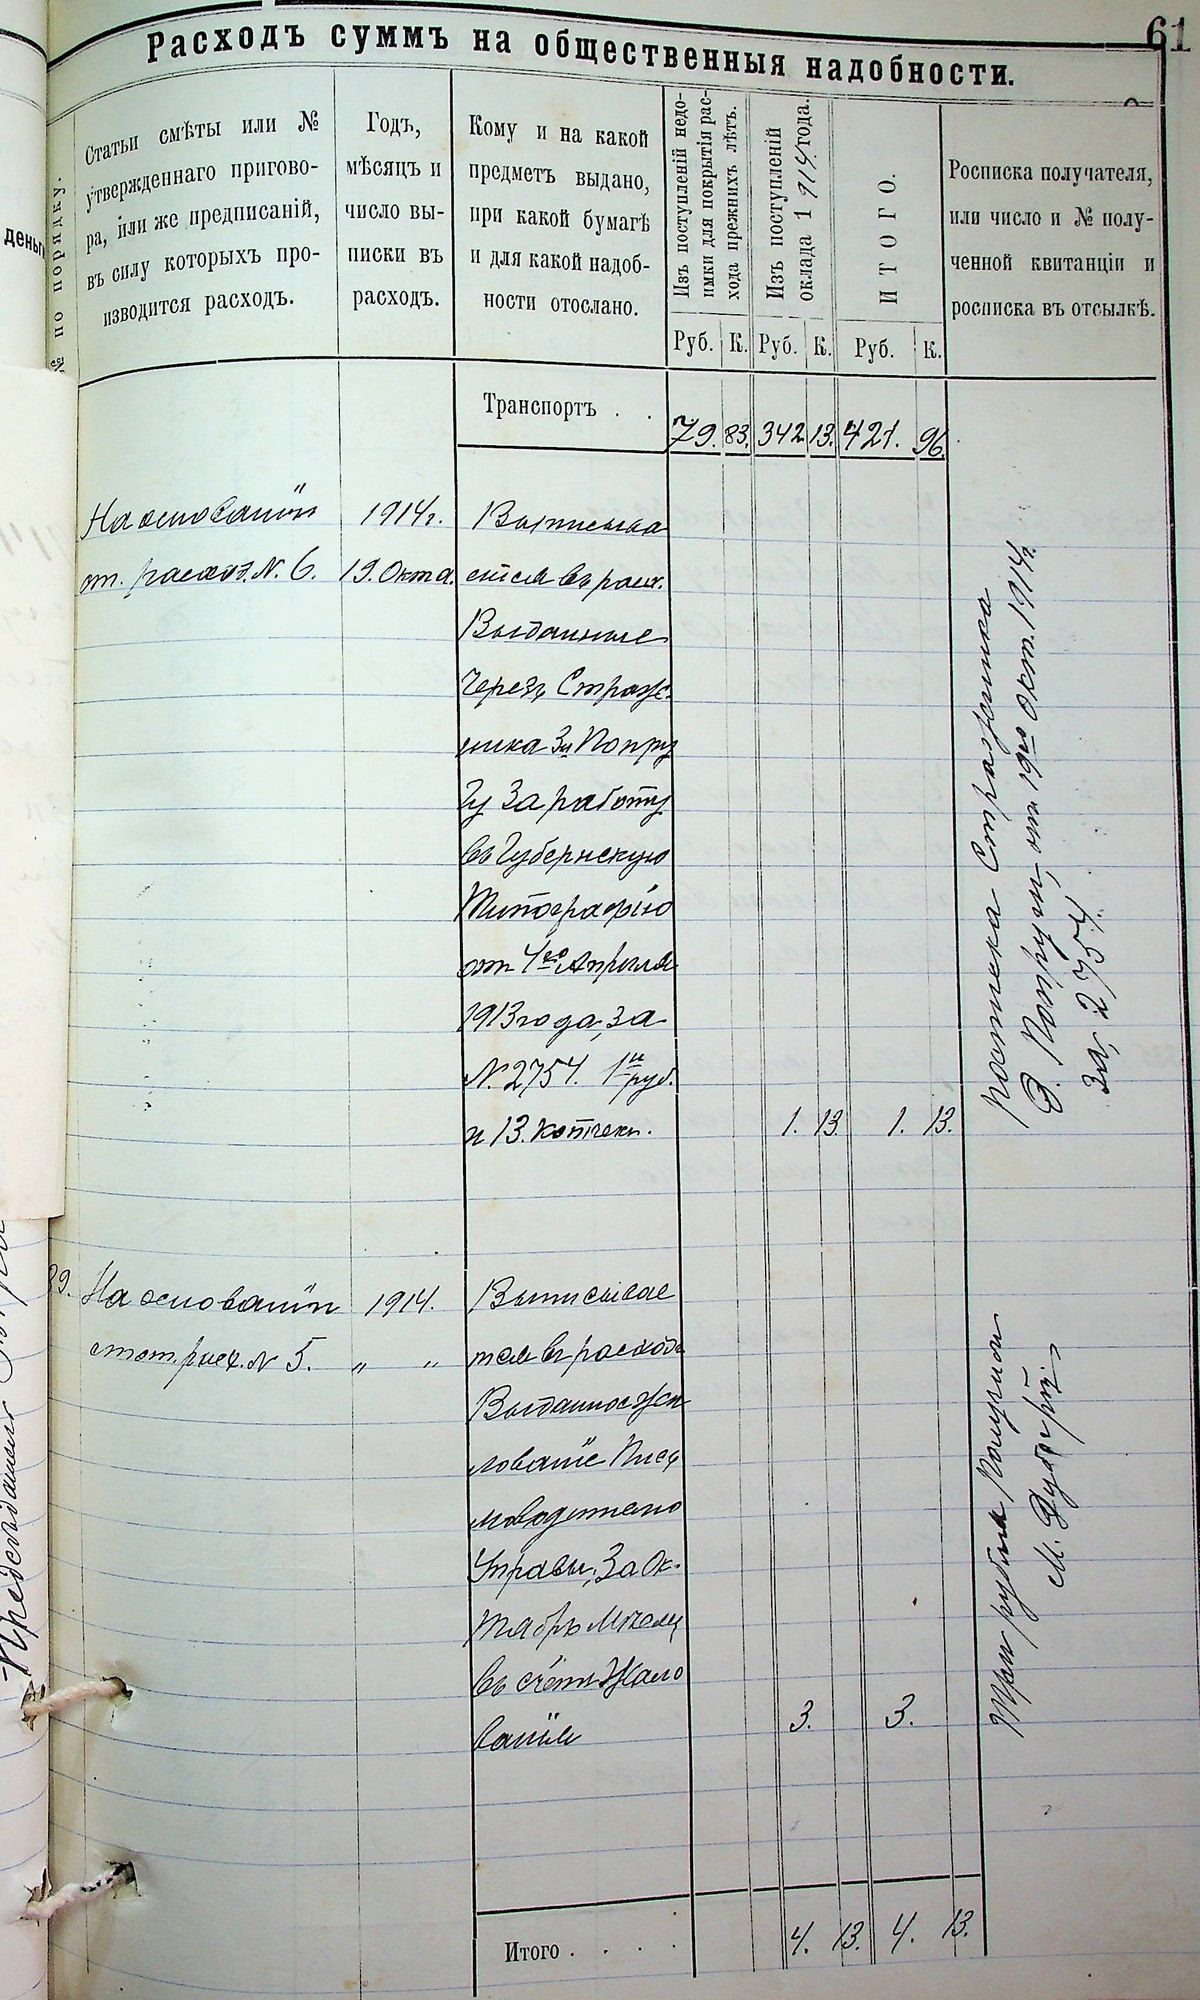 61
Расходъ суммъ на общественныя надобности.
№ по порядку.
Статьи смѣты или №
утвержденнаго пригово-
ра, или же предписаній,
въ силу которыхъ про-
изводится расходъ.
Годъ,
мѣсяцъ и
число вы-
писки въ
расходъ.
Кому и на какой
предметъ выдано,
при какой бумагѣ
и для какой надоб-
ности отослано.
Изъ поступленій недо-
имки для покрытія рас-
хода прежнихъ лѣтъ.
Изъ поступленій
оклада 1914 года.
ИТОГО.
Росписка получателя,
или число и № полу-
ченной квитанціи и
росписка въ отсылкѣ.
Руб. К. Руб. К. Руб. К.
Транспортъ . . 79. 83. 342 13. 421. 96.
На основаніи
от. расход. N. 6.
1914г.
19. Окта.
Выписыва
ется въ расх.
Выданные
черезъ Страж-
ника За Попру
гу За работу
въ Губернскую
Типографію
от 4го Апреля
1913 года, за
N. 2754. 1н руб.
и 13. копѣекъ. 1. 13. 1. 13.
Стражника
Э. Попруги, от 19го окт. 1914г.
за, 2754.
39. На основаніи
стат. расх. N 5.
1914.
" "
Выписывае
тся въ расходъ
Выданное Жа
лованіе Пись
моводителю
Управы, За Ок-
тябрь Месяц
въ счётъ Жало
ванія 3. 3.
Три рубля Получил
М.
Итого . . . . 4. 13. 4. 13.
деньг